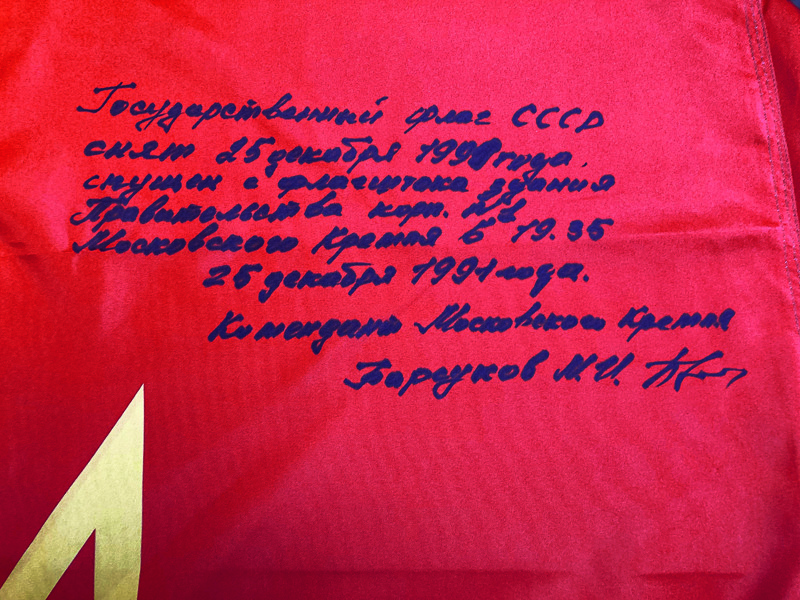 Государственный флаг СССР
снят 25 декабря 1991 года.
спущен с флагштока здания
Правительства корп. №1
Московского Кремля в 19.35
25 декабря 1991 года.
Комендант Московского Кремля
Барсуков М.И.